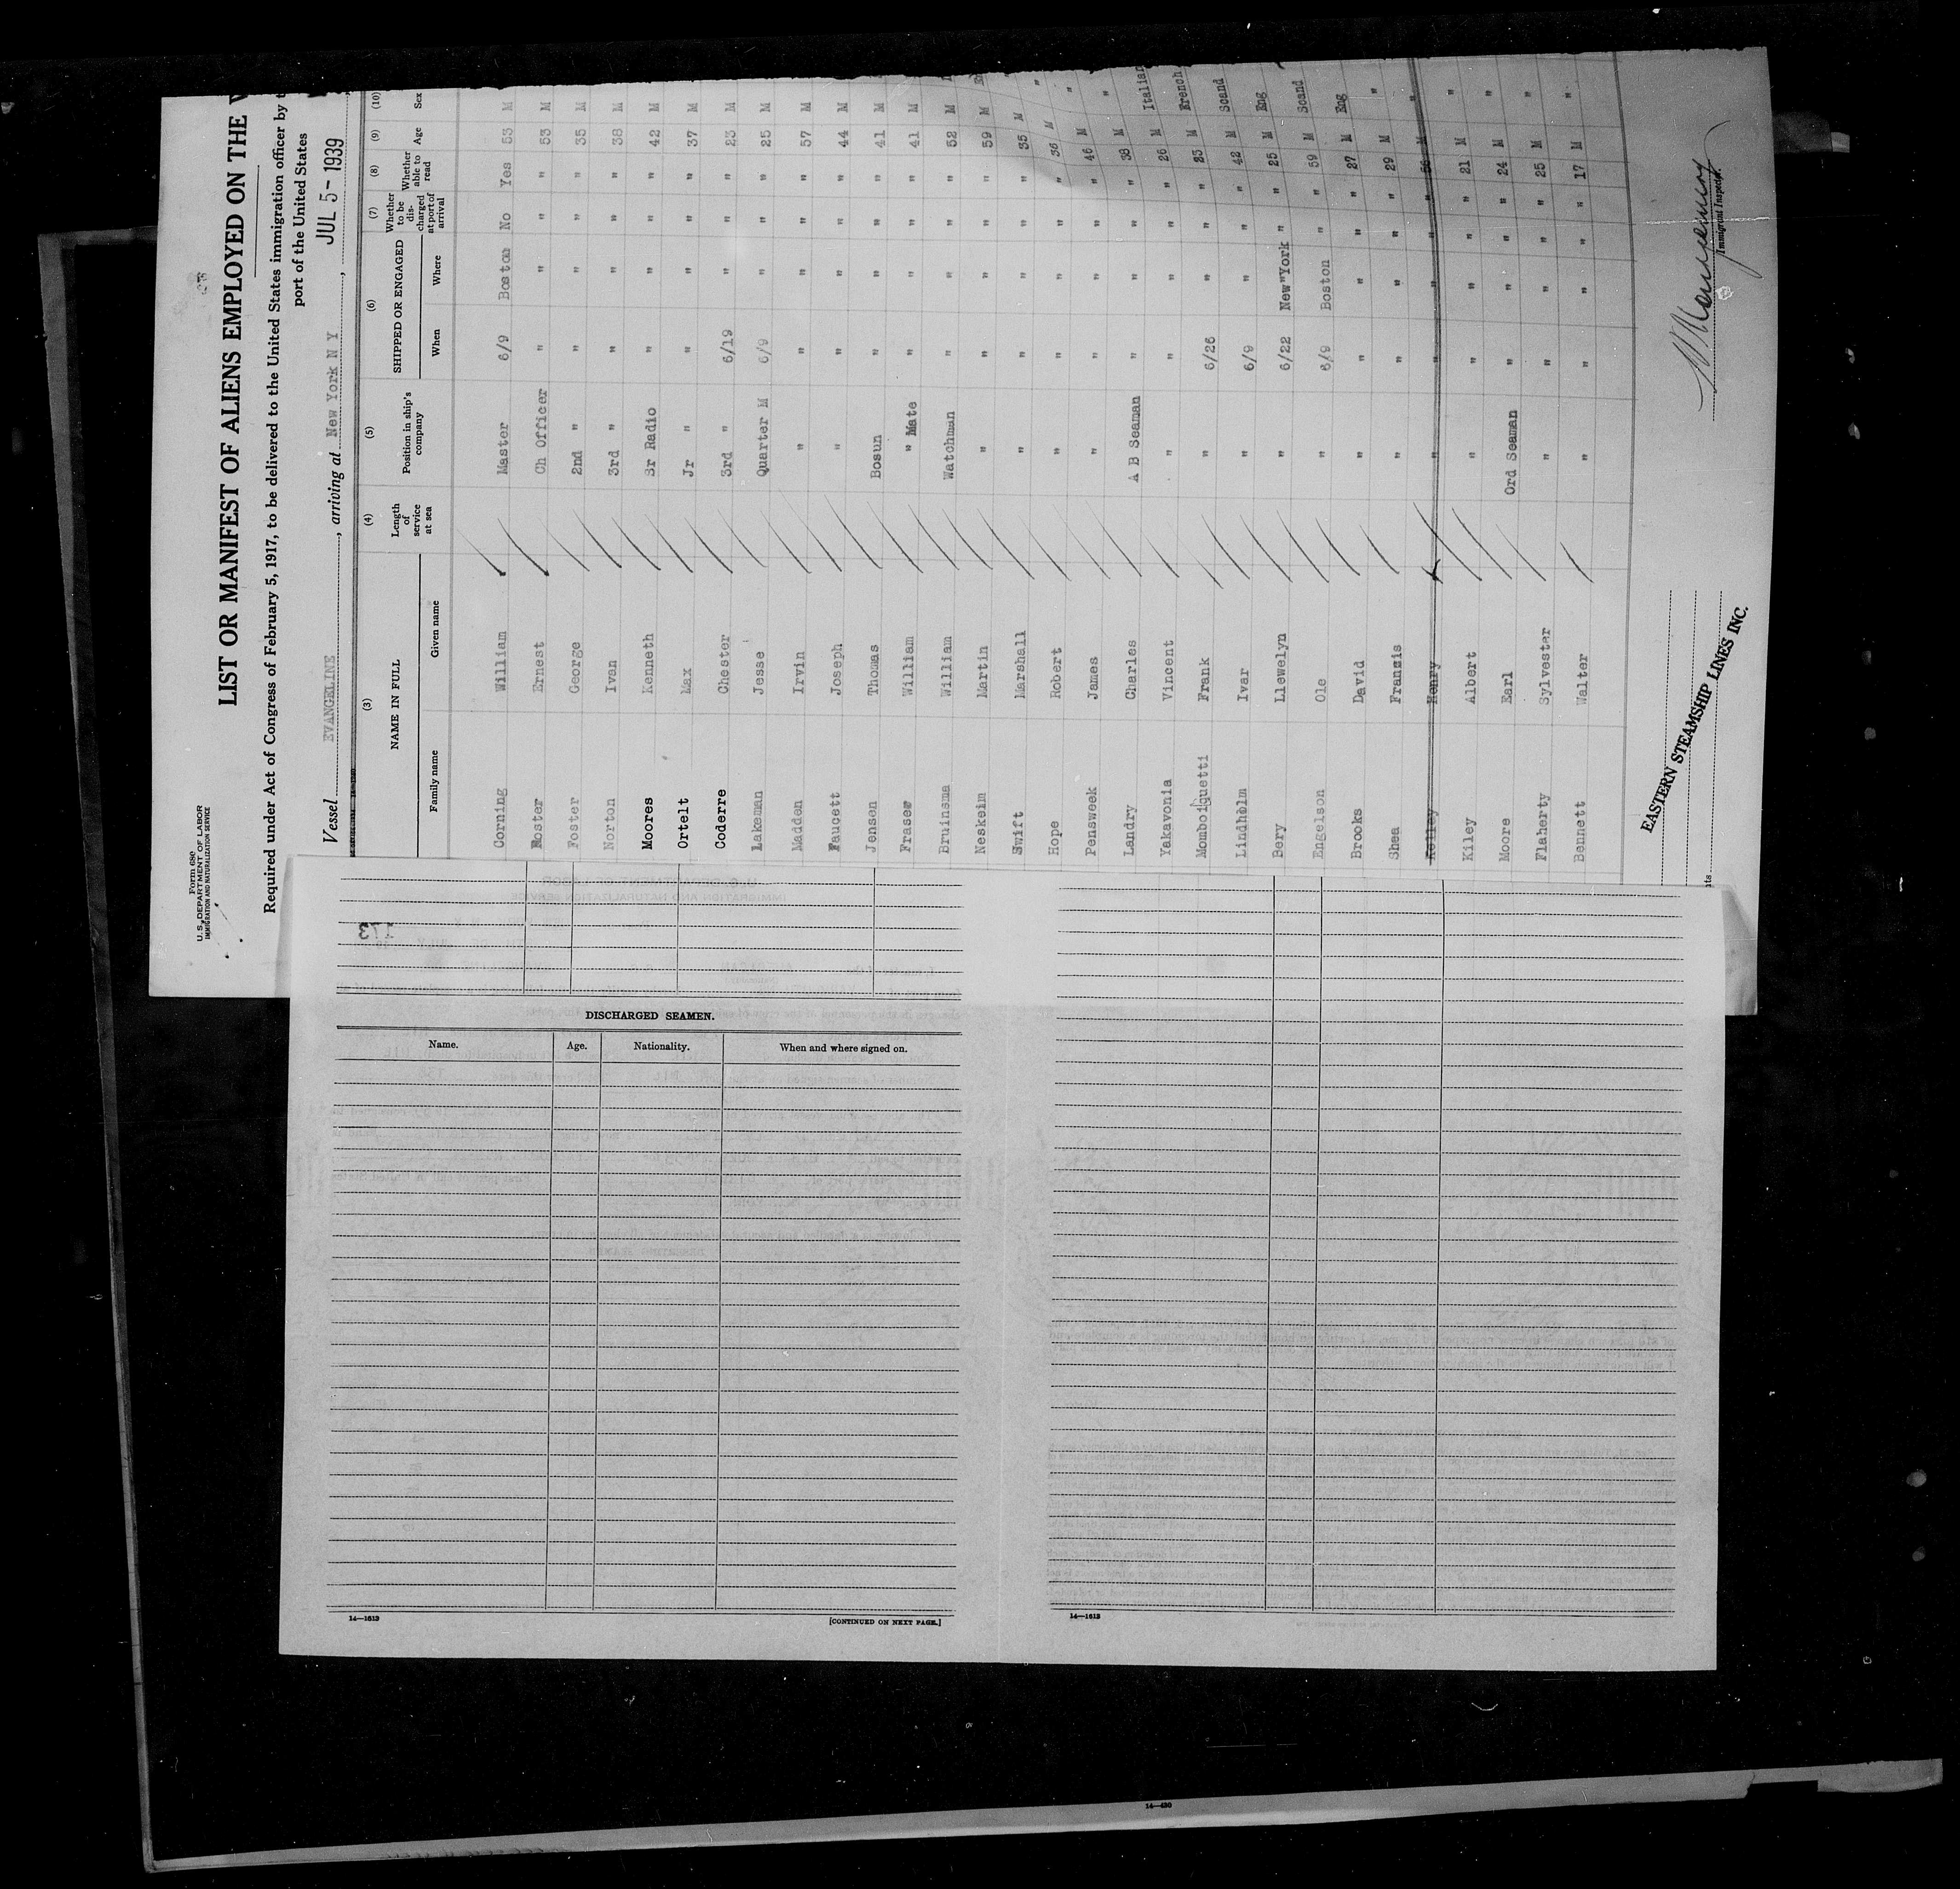 Form 680
U. S. DEPARTMENT OF LABOR
IMMIGRATION AND NATURALIZATION SERVICE
LIST OR MANIFEST OF ALIENS EMPLOYED ON THE
Required under Act of Congress of February 5, 1917, to be delivered to the United States immigration officer by
port of the United States
Vessel EVANGELINE, arriving at New York N Y, JUL 5 - 1939
(3) (4) (5) (6) (7) (8) (9) (10)
NAME IN FULL Length of service at sea Position in ship's company SHIPPED OR ENGAGED Whether to be discharged at port of arrival Whether able to read Age Sex
Family name Given name When Where
Corning William Master 6/9 Boston No Yes 53 M
Foster Ernest Ch Officer " " " " 53 M
Foster George 2nd " " " " " 35 M
Norton Ivan 3rd " " " " " 38 M
Moores Kenneth Sr Radio " " " " 42 M
Ortelt Max Jr " " " " " 37 M
Coderre Chester 3rd " 6/19 " " " 23 M
Lakeman Jesse Quarter M 6/9 " " " 25 M
Madden Irvin " " " " " 57 M
Faucett Joseph " " " " " 44 M
Jensen Thomas Bosun " " " " 41 M
Fraser William " Mate " " " " 41 M
Bruinsma William Watchman " " " " 52 M
Neskeim Martin " " " " " 59 M
Swift Marshall " " " " " 35 M "
Hope Robert " " " " " 36 M "
Pensweek James " " " " " 46 M "
Landry Charles A B Seaman " " " " 38 M Italian
Yakavonia Vincent " " " " " 26 M French
Momboiquetti Frank " 6/26 " " " 23 M Scand
Lindholm Ivar " 6/9 " " " 42 M Eng
Bery Llewelyn " 6/22 New York " " 25 M Scand
Engelson Ole " 6/9 Boston " " 59 M Eng
Brooks David " " " " " 27 M "
Shea Francis " " " " " 29 M "
Kelley Henry " " " " " 56 M "
Kiley Albert " " " " " 21 M "
Moore Earl Ord Seaman " " " " 24 M "
Flaherty Sylvester " " " " " 25 M "
Bennett Walter " " " " " 17 M
EASTERN STEAMSHIP LINES INC.
Immigrant Inspector.
173
DISCHARGED SEAMEN.
Name. Age. Nationality. When and where signed on.
14—1613 [CONTINUED ON NEXT PAGE.]
14—1613
14—430